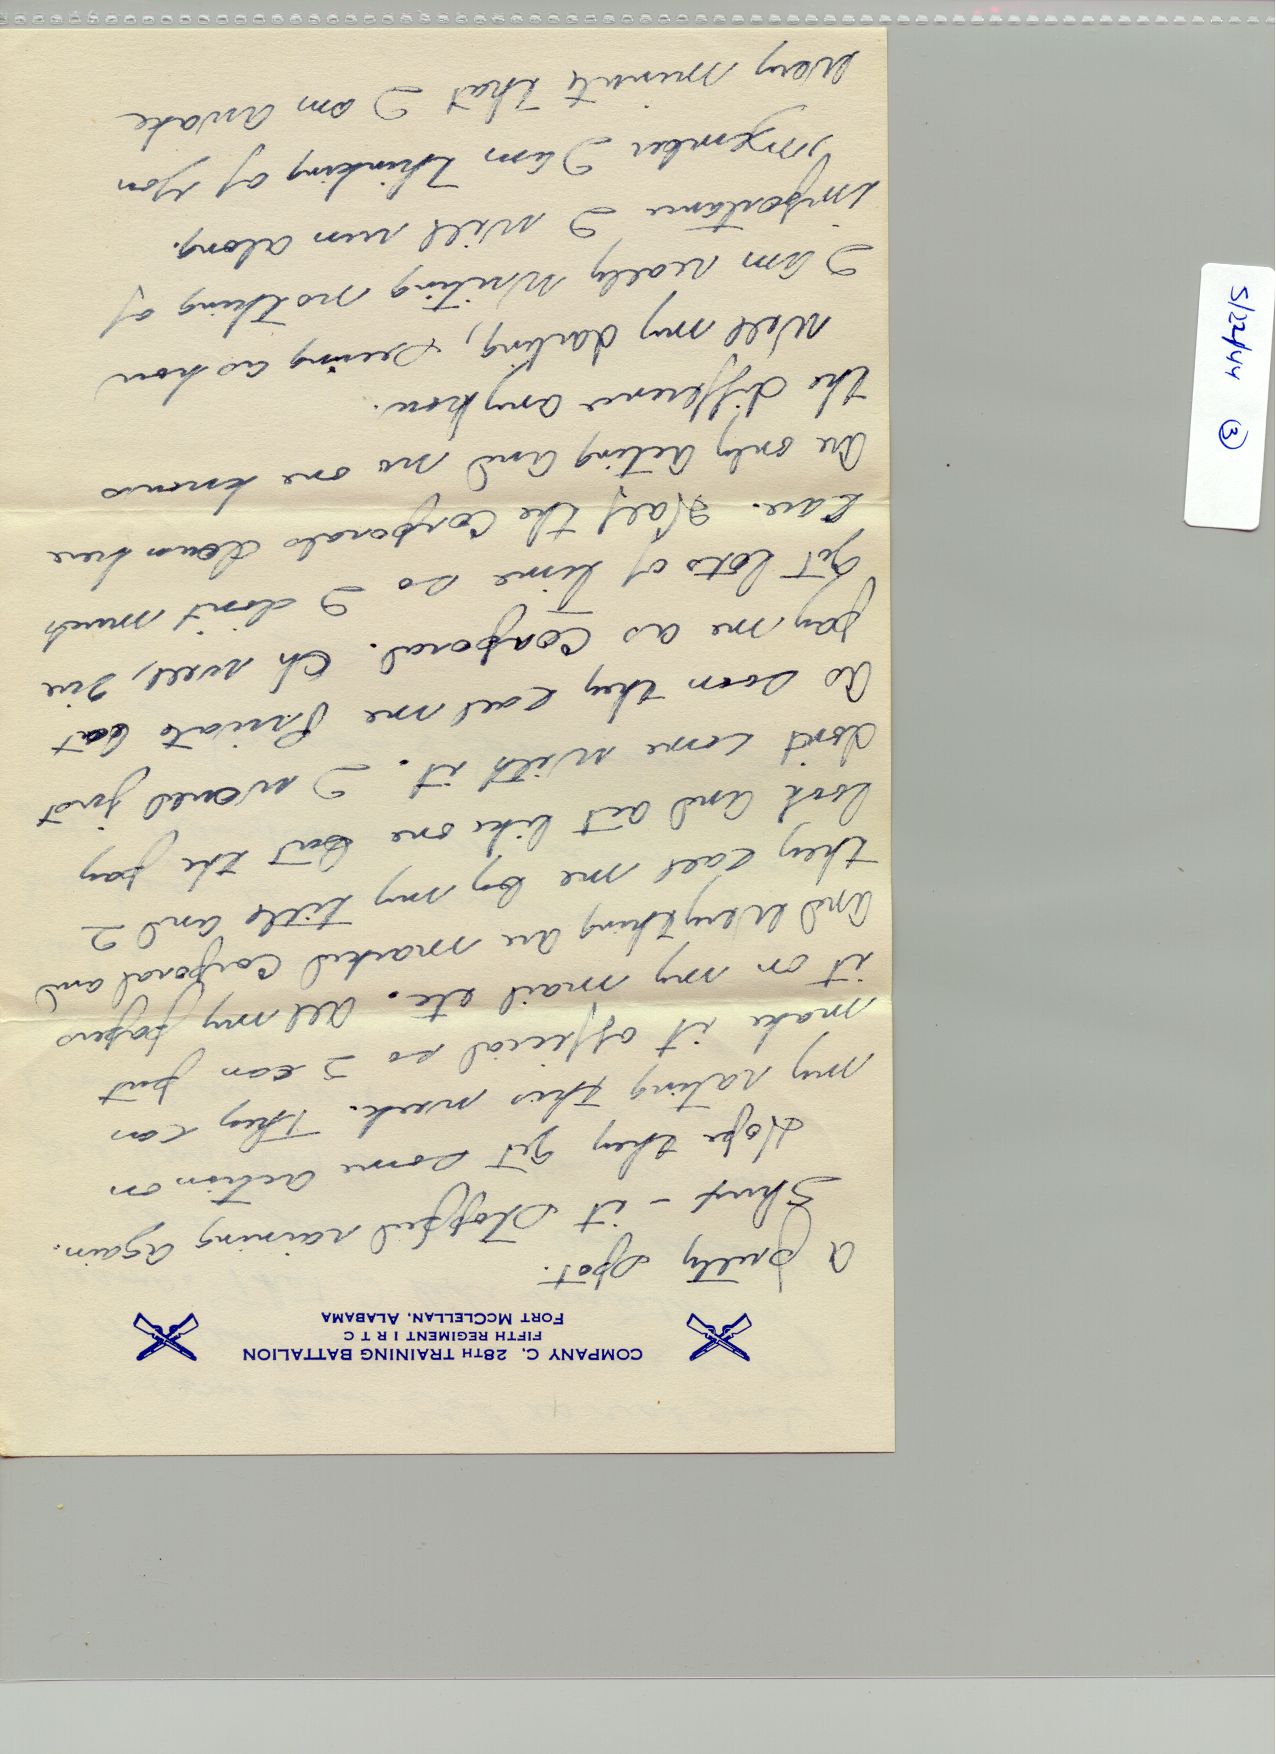 COMPANY C, 28TH TRAINING BATTALION
FIFTH REGIMENT I R T C
FORT MCCLELLAN, ALABAMA
a pretty spot.
Shux - it stopped raining again.
Hope they get some action on
my rating this week. They can
make it official so I can put
it on my mail etc. All my papers
and everything are marked Corporal and
they call me by my title and I
look and act like one but the pay
don't come with it. I would just
as soon they call me Private but
pay me as Corporal. Oh well, I've
got lots of time so I don't much
care. Half the Corporals down here
are only acting and no one knows
the difference anyhow.
Well my darling, seeing as how
I am really writing nothing of
importance I will run along.
I'm thinking of you
every minute that I am awake
5/22/44 3